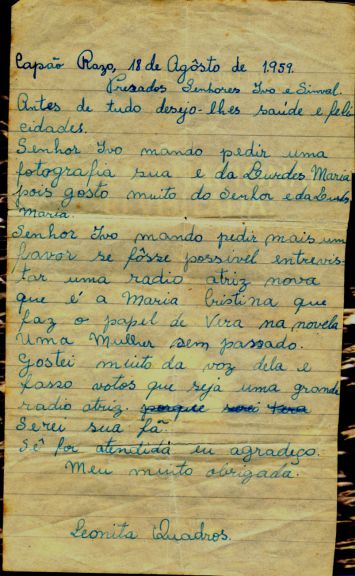 Capão Razo, 18 de Agôsto de 1959.
Prezados Senhores Ivo e Sinval.
Antes de tudo desejo-lhes saúde e feli
cidades.
Senhor Ivo mando pedir uma
fotografia sua e da Lourdes Maria
pois gosto muito do Senhor e da Lourdes
Maria.
Senhor Ivo mando pedir mais um
favor se fôsse possível entrevis-
tar uma radio atriz nova
que é a Maria Cristina que
faz o papel de Vera na novela
Uma Mulher sem passado.
Gostei muito da voz dela e
fasso votos que seja uma grande
radio atriz. porque serei
Serei sua fã.
Sê for atendida eu agradeço.
Meu muito obrigada.
Leonita Quadros.